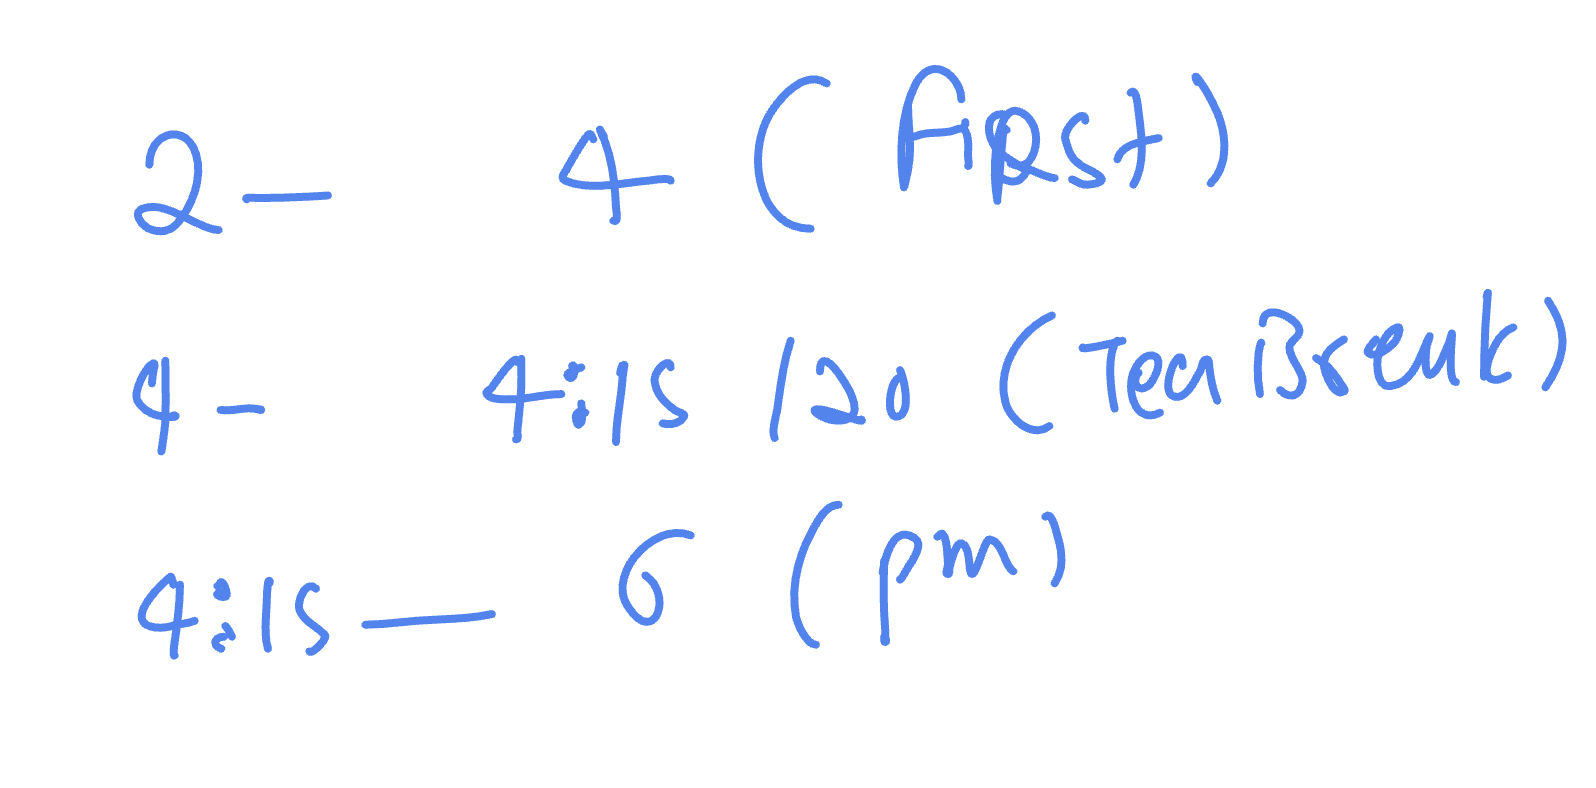 2 — 4 (first)
4 - 4:15 /20 (Tea Break)
4:15 — 6 (pm)